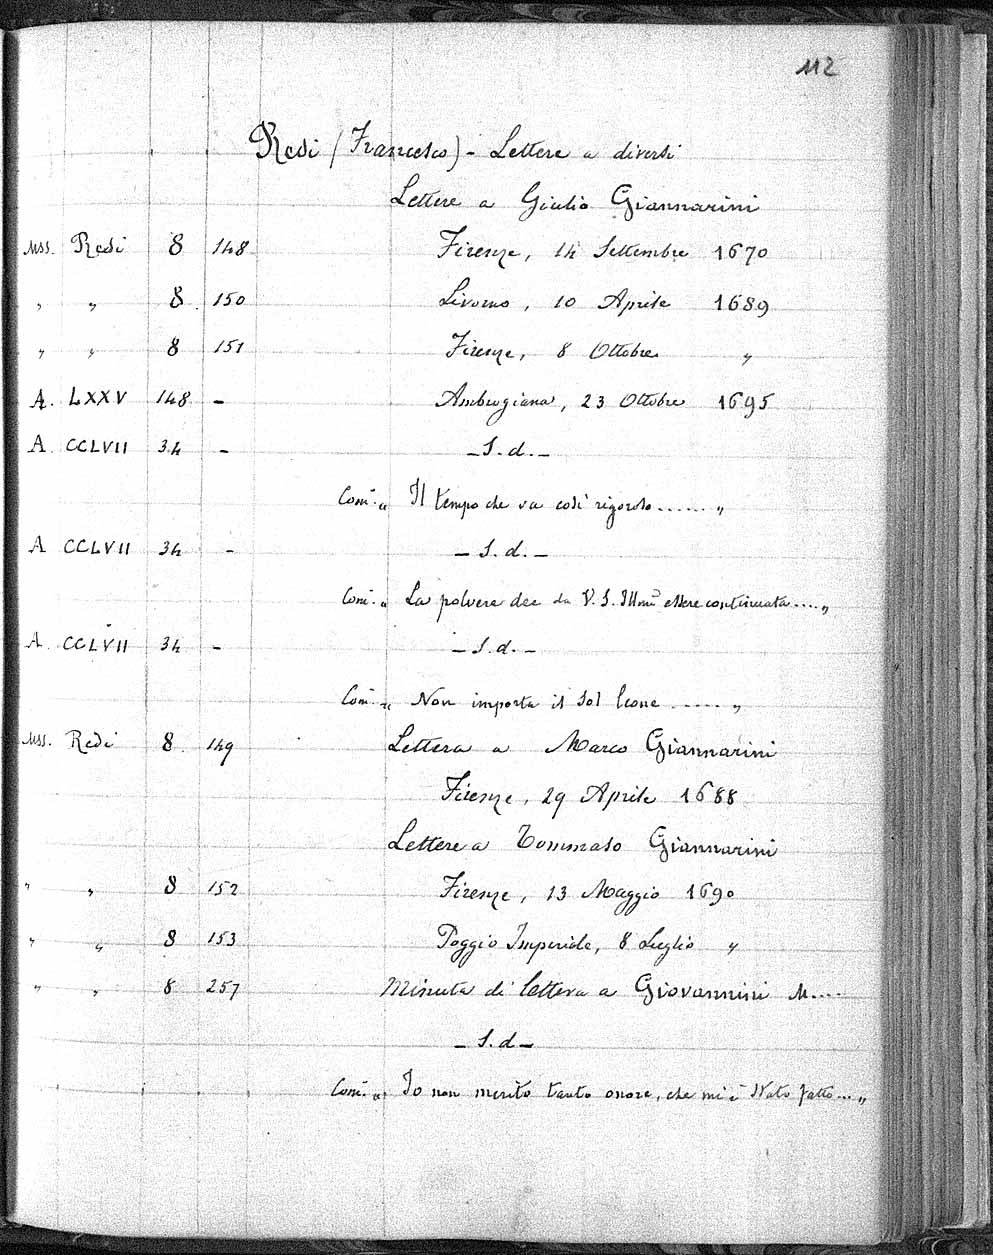 112
Redi (Francesco) - Lettere a diversi
Lettere a Giulio Giannarini
Mss. Redi 8 148 Firenze, 14 Settembre 1670
" " 8 150 Livorno, 10 Aprile 1689
" " 8 151 Firenze, 8 Ottobre "
A. LXXV 148 - Ambrogiana, 23 Ottobre 1695
A CCLVII 34 - - S. d. -
Com. " Il tempo che va così rigoroso ...... "
A CCLVII 34 - - S. d. -
Com. " La polvere dee da V. S. Illma essere continuata .... "
A CCLVII 34 - - S. d. -
Com. " Non importa il Sol leone ..... "
Mss. Redi 8 149 Lettera a Marco Giannarini
Firenze, 29 Aprile 1688
Lettere a Tommaso Giannarini
" " 8 152 Firenze, 13 Maggio 1690
" " 8 153 Poggio Imperiale, 8 Luglio "
" " 8 257 Minuta di lettera a Giovannini M....
- S. d -
Com. " Io non merito tanto onore, che mi è stato fatto ... "